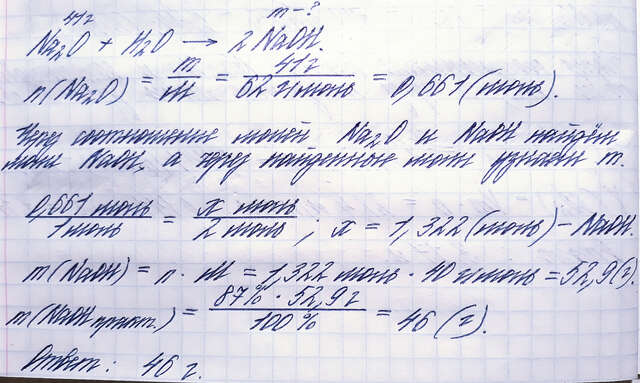 41г m-?
Na₂O + H₂O → 2 NaOH.
n(Na₂O) = m/M = 41г/62 г/моль = 0,661 (моль).
Через соотношение молей Na₂O и NaOH найдём
моли NaOH, а через найденные моли узнаем m.
0,661 моль/1 моль = x моль/2 моль ; x = 1,322 (моль) – NaOH.
m(NaOH) = n · M = 1,322 моль · 40 г/моль = 52,9 (г).
m(NaOH практ.) = 87% · 52,9 г/100 % = 46 (г).
Ответ: 46 г.